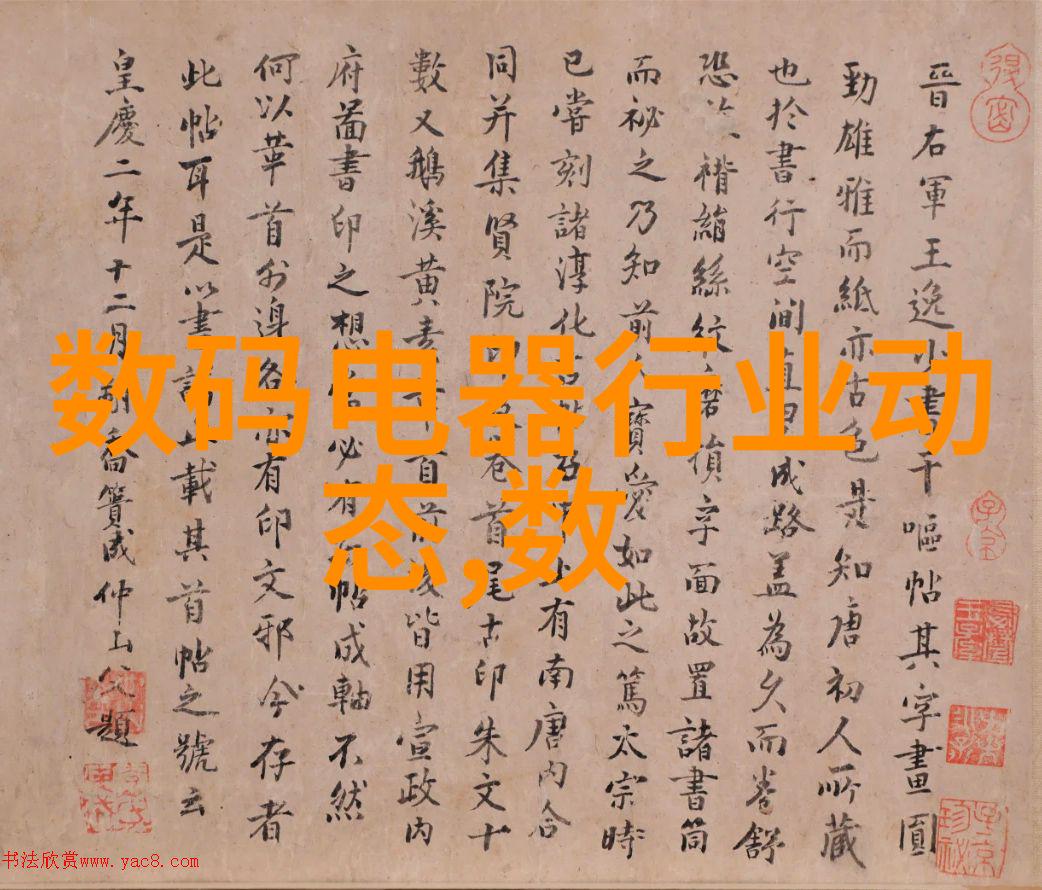 晉右軍王逸少書干嘔帖其字畫圓
勁雄雅而紙亦古色是知唐初人所藏
也於書行空間直界成路蓋為久而卷舒
恐 褙絹絲紋磨損字面故置諸書筒
而祕之乃知前 寶愛如此之篤太宗時
已嘗刻諸淳化 上有南唐內合
同并集賢院 卷首尾古印朱文十
數又鵝溪黃 首 皆用宣政內
府圖書印之想 必有 帖成軸不然
何以華首列逸名亦有印文邪今存者
此帖耳是以書 載其首帖之號云
皇慶二年十二月 喬簣成仲山父題
数码电器行业动
态,数
书法欣赏www.yac8.com